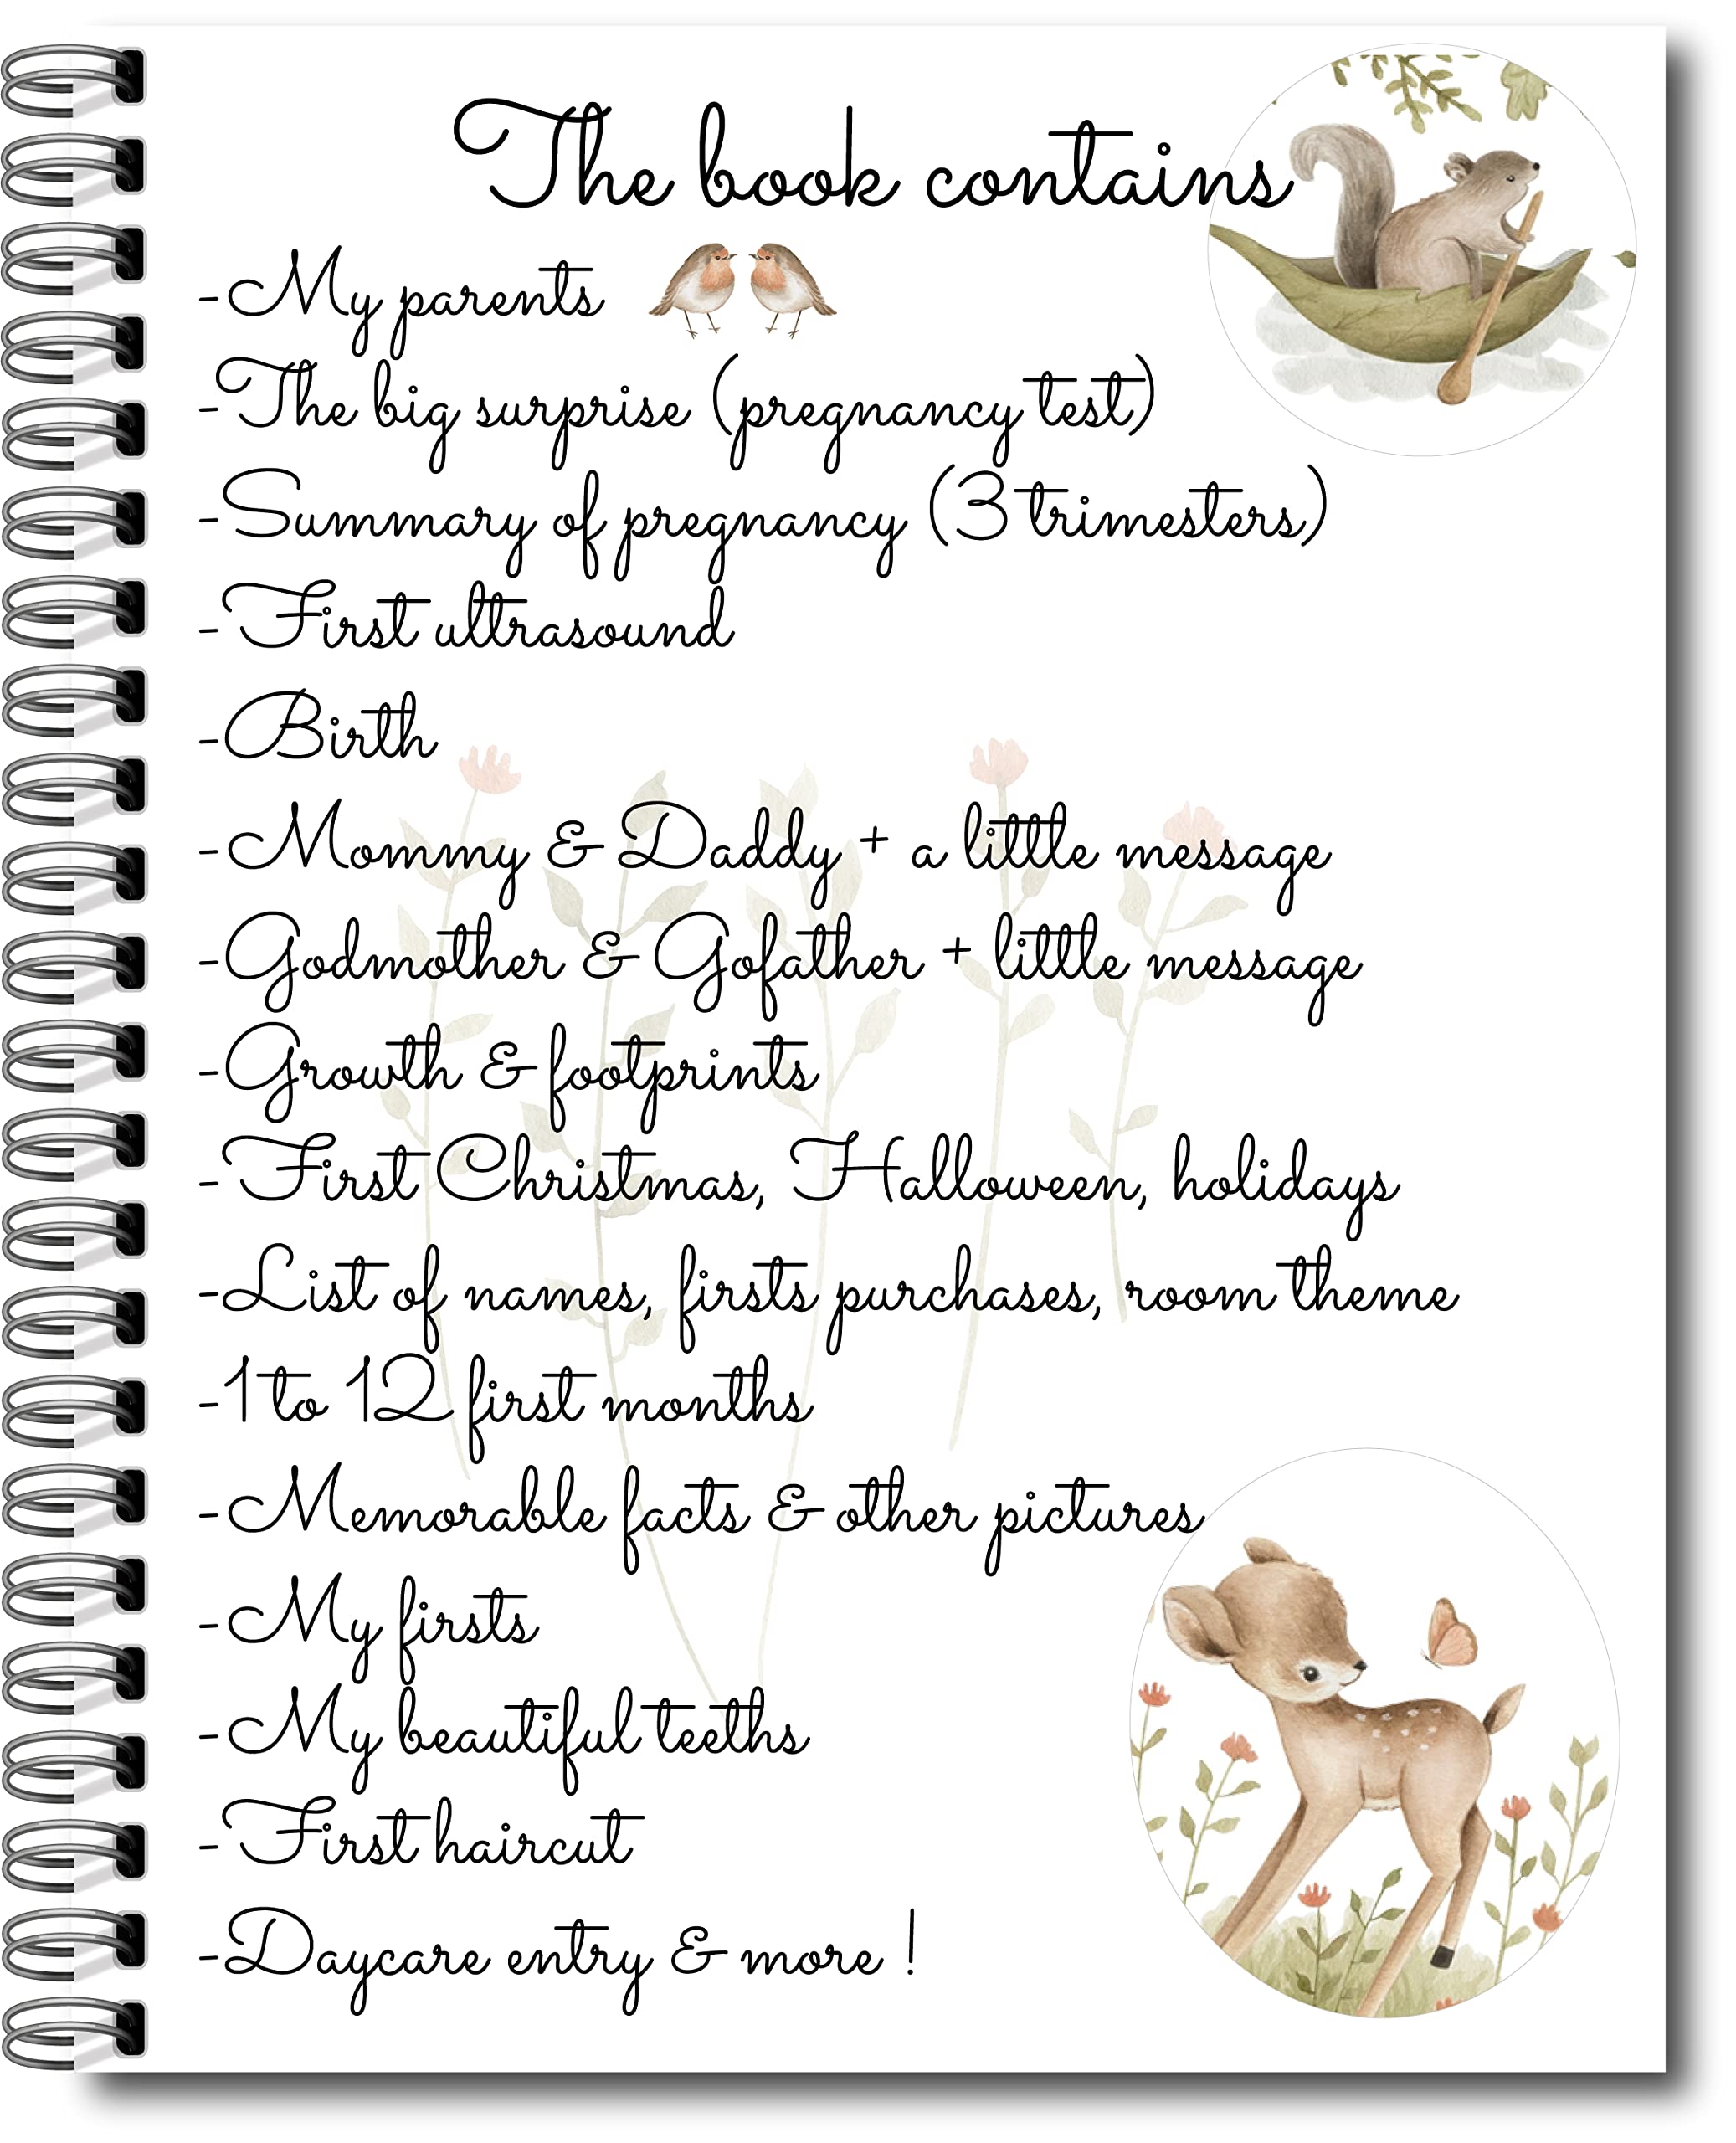 The book contains
-My parents
-The big surprise (pregnancy test)
-Summary of pregnancy (3 trimesters)
-First ultrasound
-Birth
-Mommy & Daddy + a little message
-Godmother & Gofather + little message
-Growth & footprints
-First Christmas, Halloween, holidays
-List of names, firsts purchases, room theme
-1 to 12 first months
-Memorable facts & other pictures
-My firsts
-My beautiful teeths
-First haircut
-Daycare entry & more !